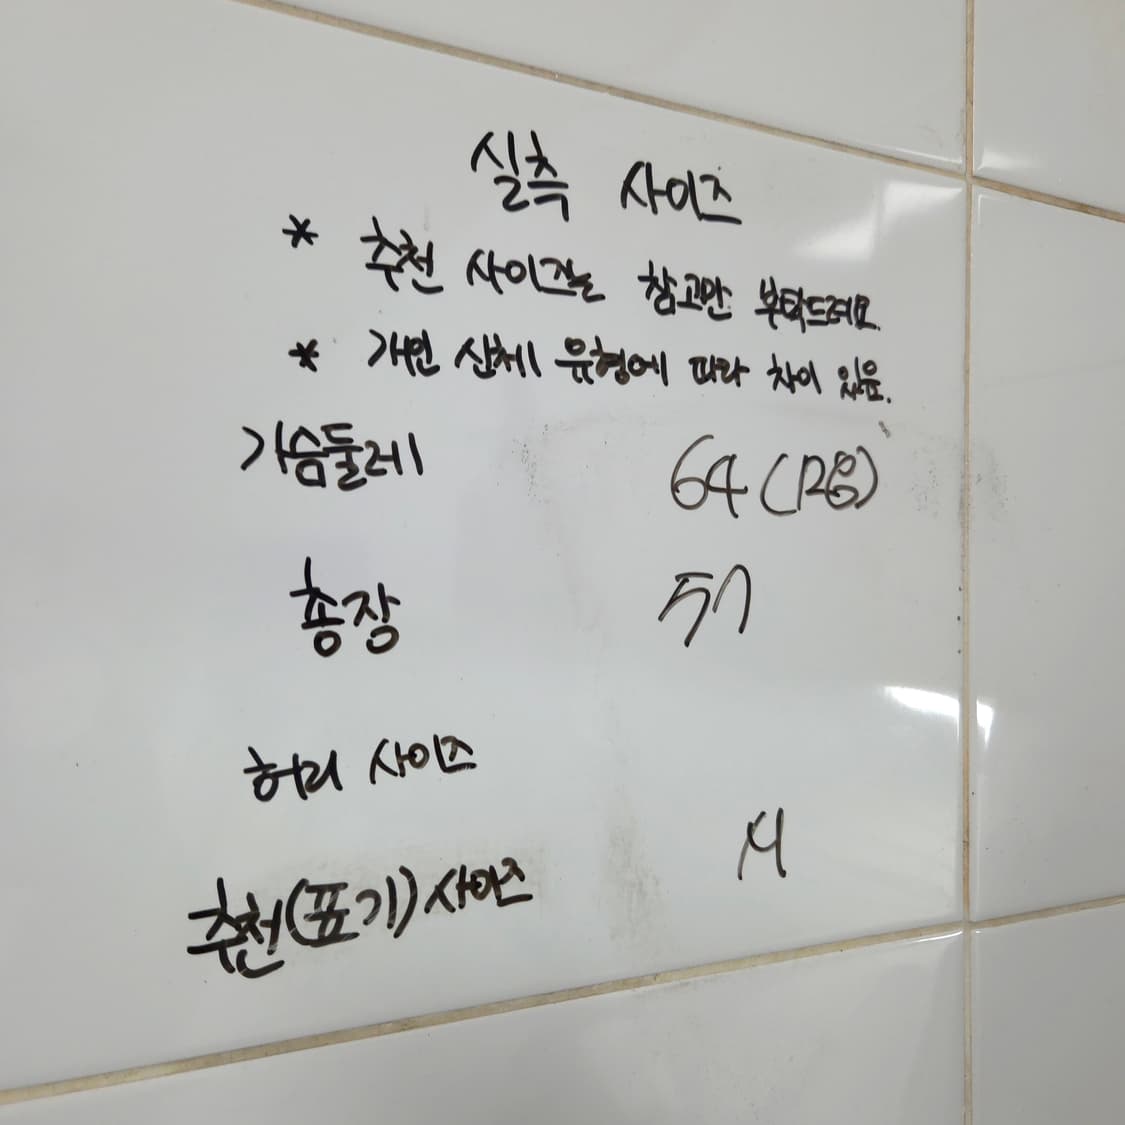 실측 사이즈
* 추천 사이즈는 참고만 부탁드려요.
* 개인 신체 유형에 따라 차이 있음.
가슴둘레 64 (128)
총장 57
허리 사이즈
추천(표기) 사이즈 M